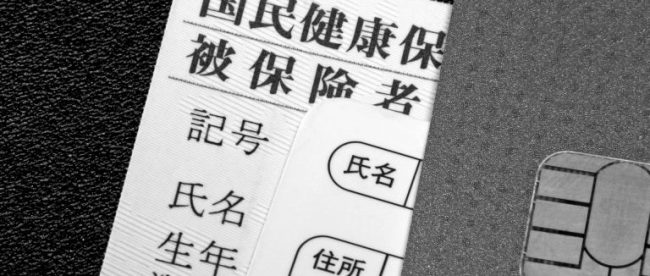 国民健康保
被保険者
記号
氏名
生年
氏名
住所